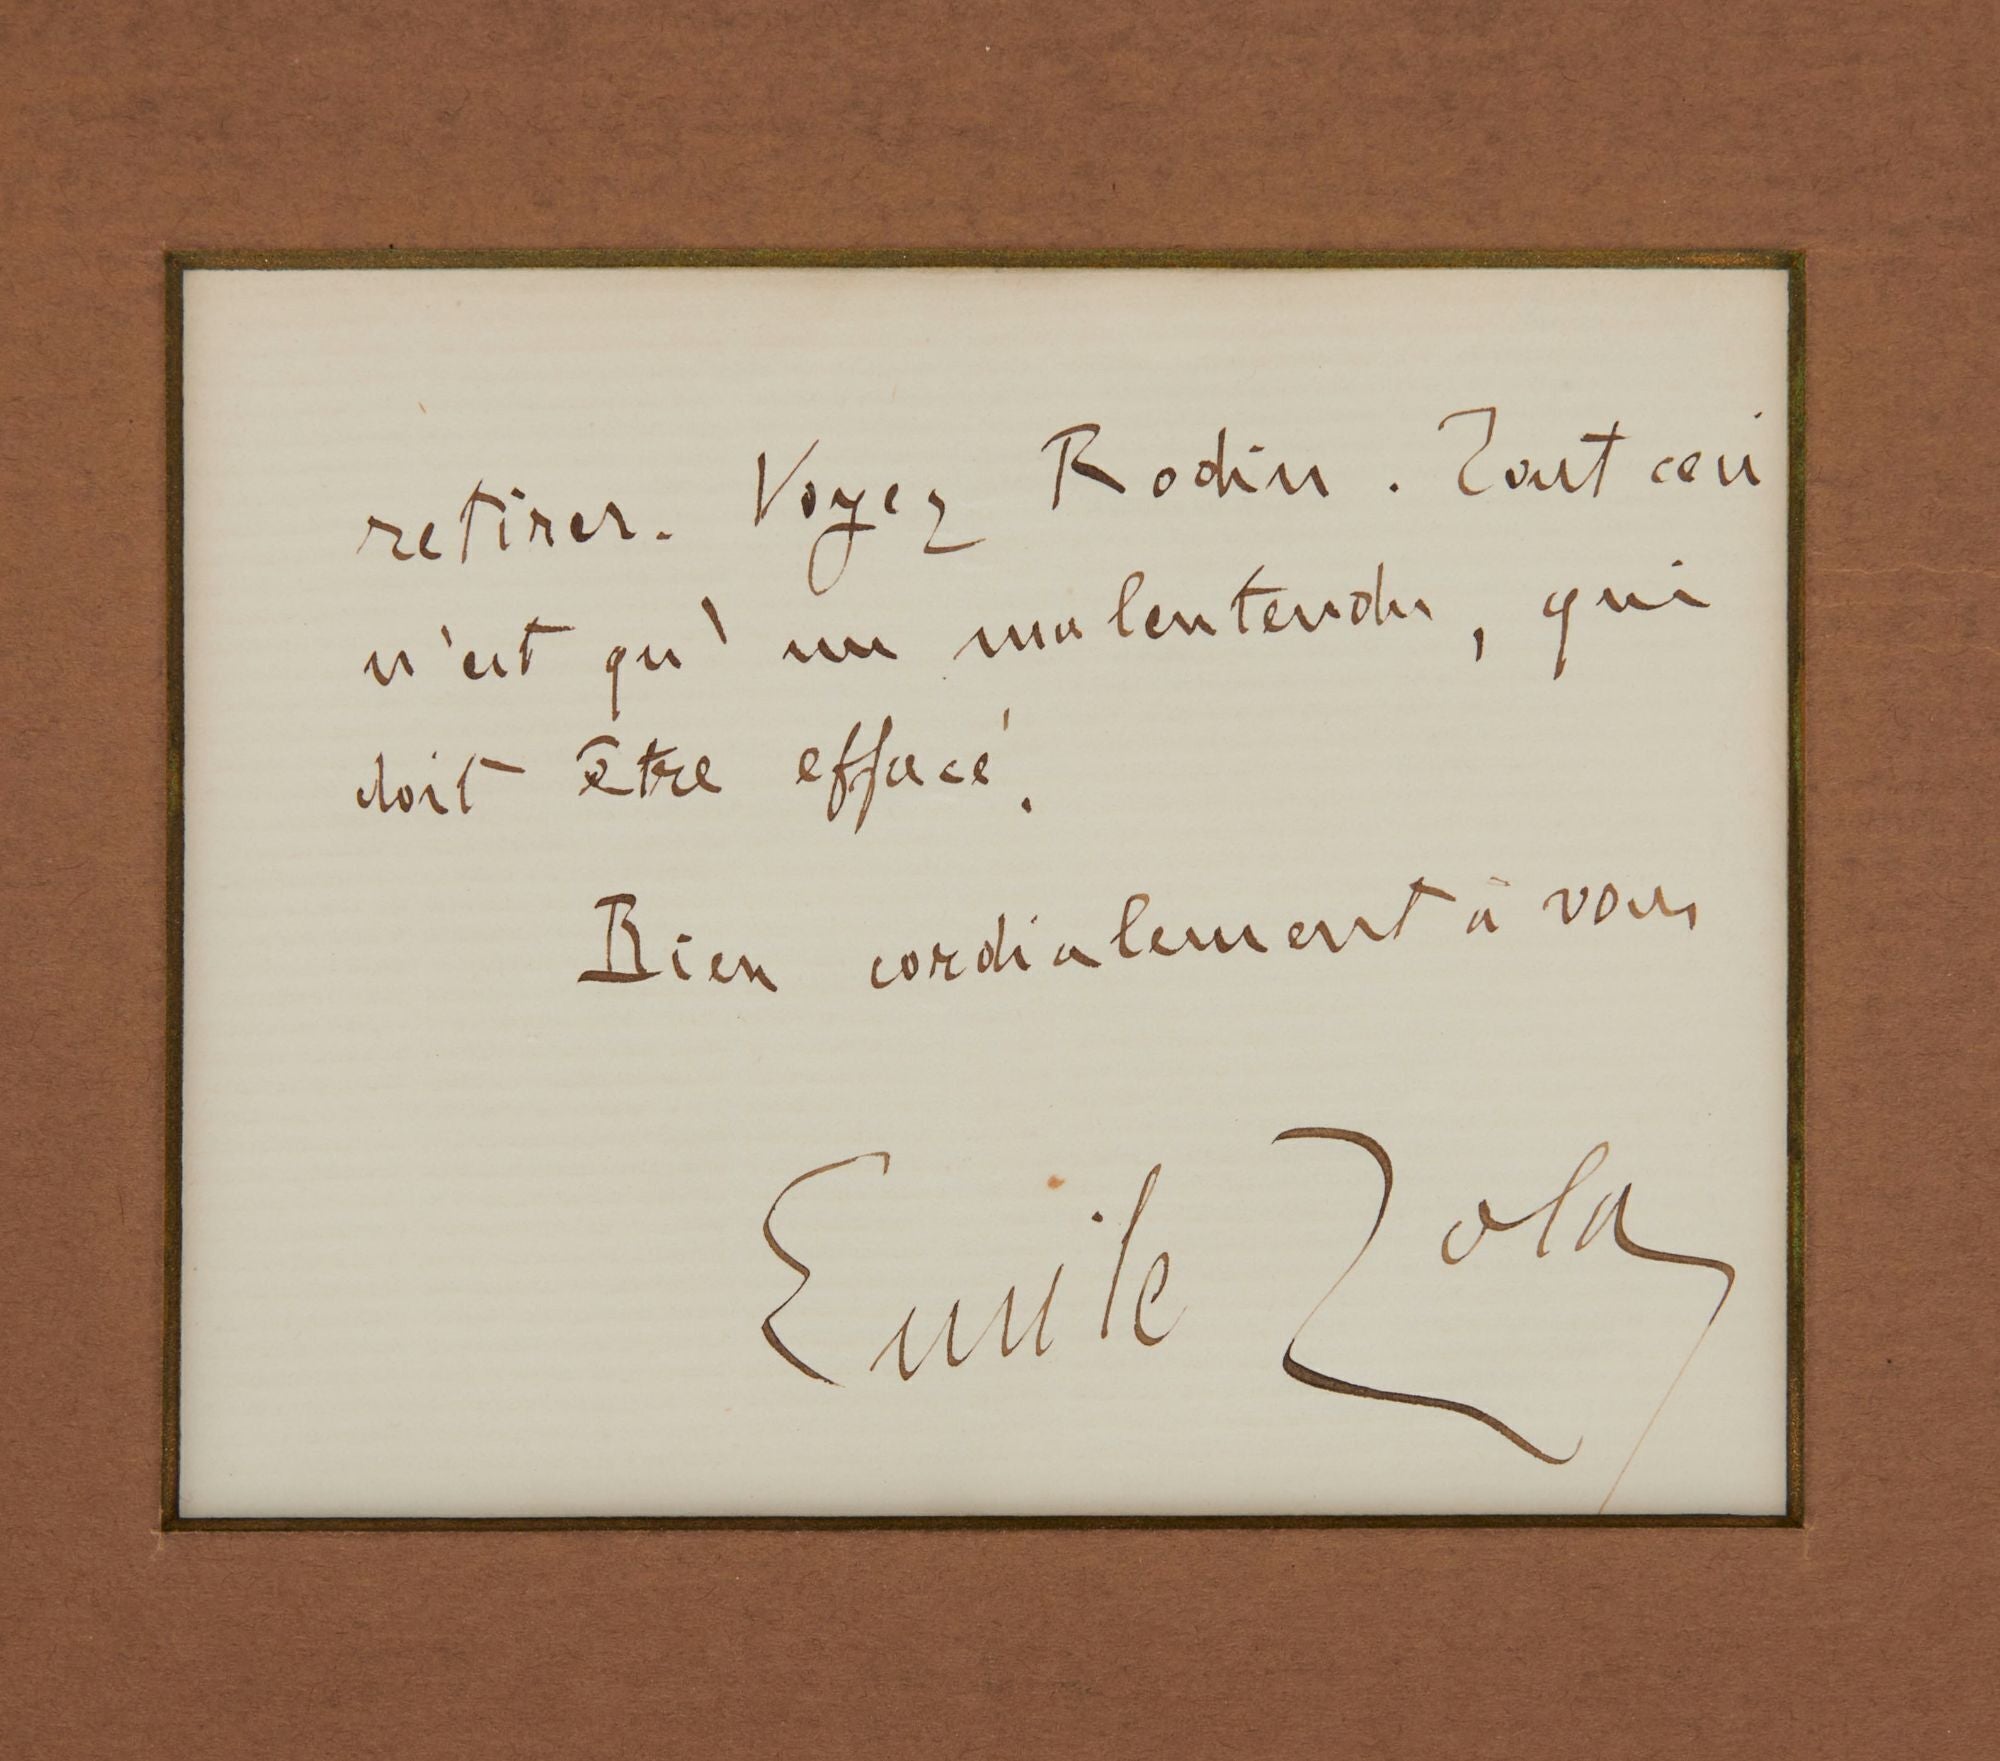 retirer. Voyez Rodin. Tout ceci
n'est qu'un malentendu, qui
doit être effacé.
Bien cordialement à vous
Emile Zola